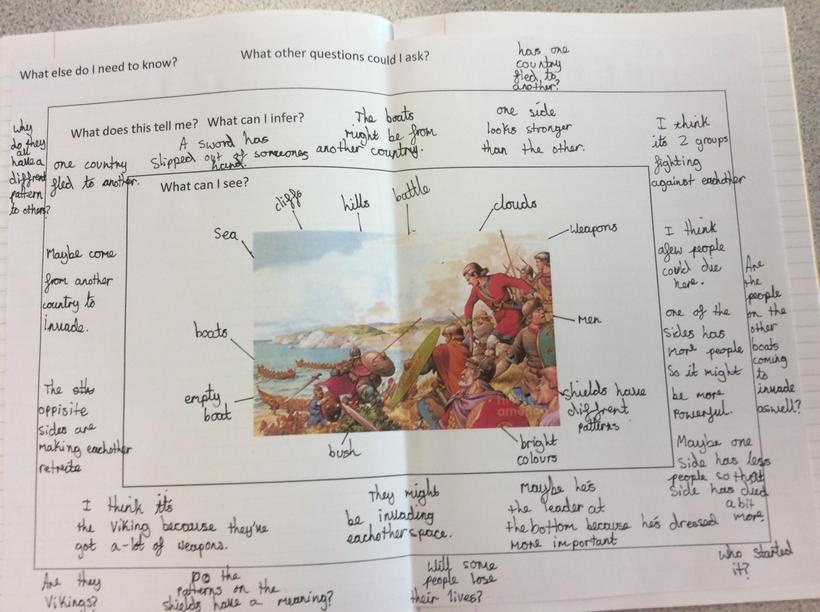 What else do I need to know?
What other questions could I ask?
has one
country
fled to
another?
Why
do they
all
have a
diffrent
pattern
to others?
What does this tell me? What can I infer?
one country
fled to another.
A sword has
slipped out of someones
hand.
The boats
might be from
another country.
one side
looks stronger
than the other.
I think
its 2 groups
fighting
against eachother
What can I see?
Sea
cliffs
hills
battle
clouds
weapons
Men
shields have
diffrent
patterns
bright
colours
bush
empty
boat
boats
Maybe come
from another
country to
invade.
The
oppisite
sides are
making eachother
retrete
I think
afew people
could die
here.
one of the
sides has
more people
so it might
be more
powerful.
Maybe one
side has less
people so that
side has died
a bit
more.
Are
the
people
on the
other
boats
coming
to
invade
aswell?
I think its
the Viking because they've
got a-lot of weapons.
They might
be invading
eachother space.
Maybe he's
the leader at
the bottom because he's dressed
more important
Are they
Vikings?
Do the
patterns on the
shields have a meaning?
Will some
people lose
their lives?
Who started
it?